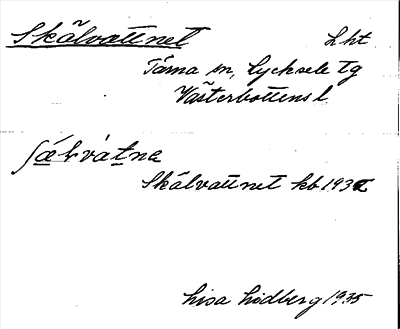 Skålvattnet L ht
Tärna sn, Lycksele tg
Västerbottens l
Skålvattnet kb 193
Lisa Lidberg 1935